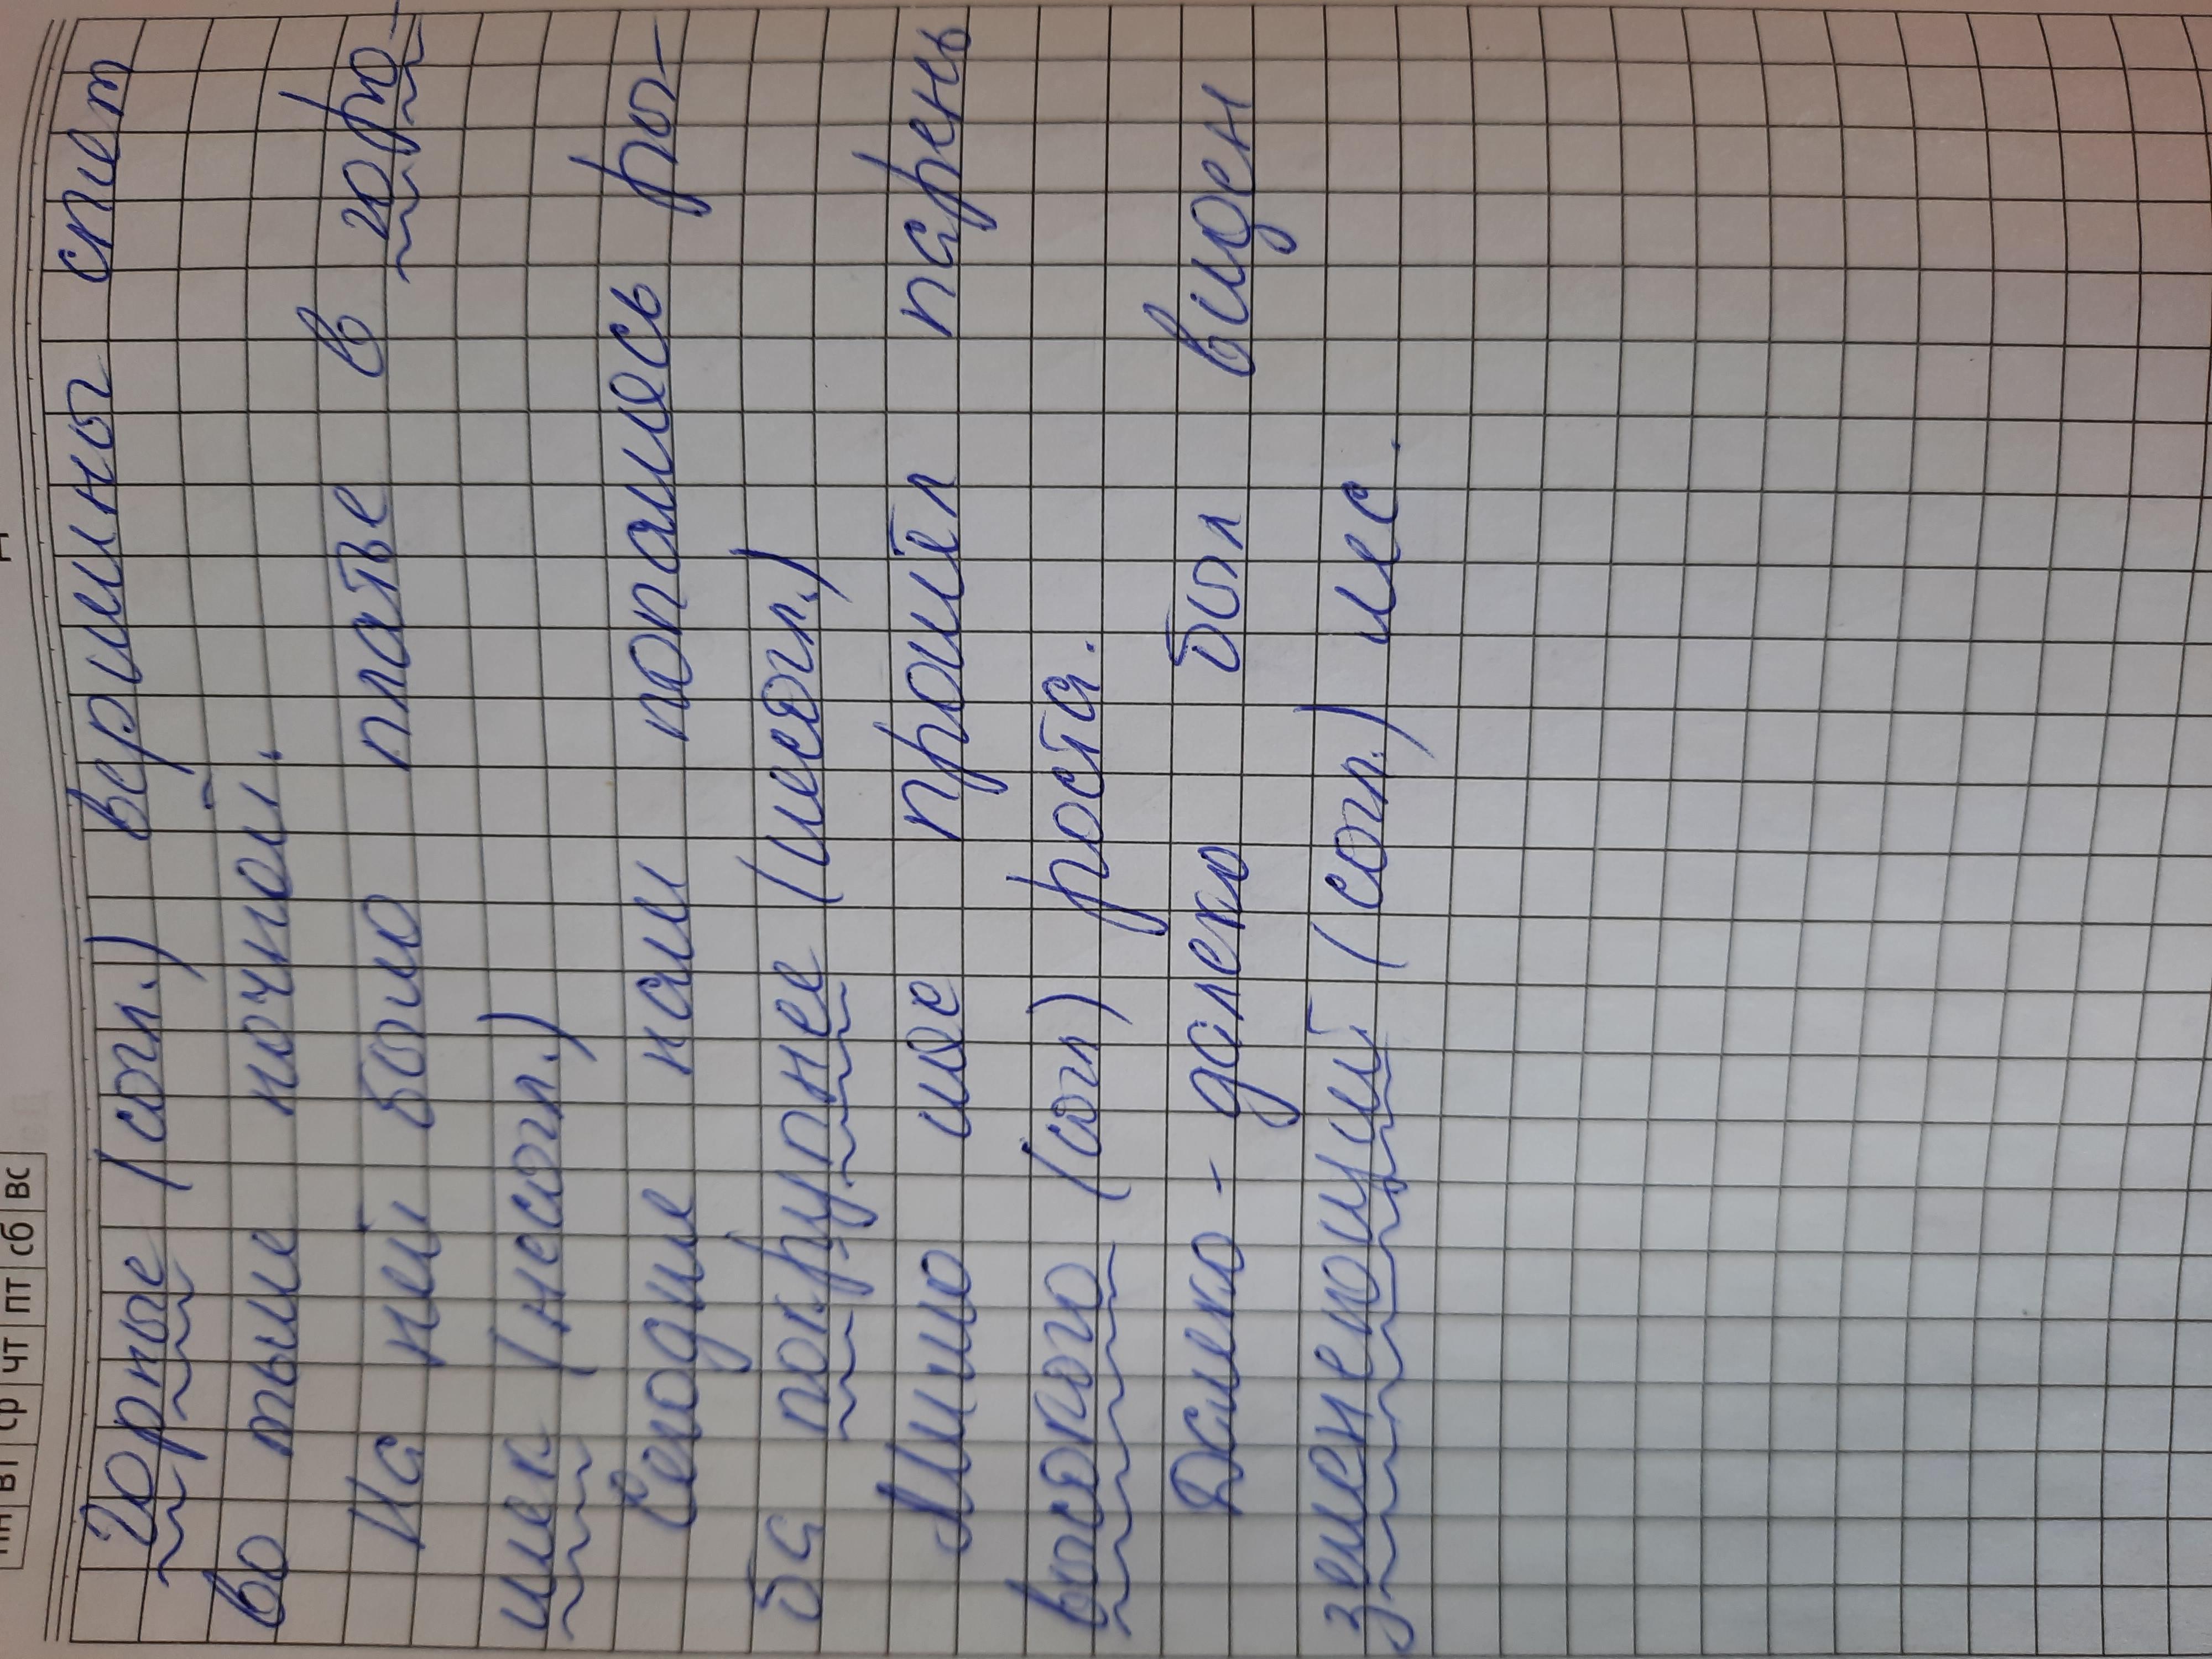 пн вт ср чт пт сб вс
Горные (согл.) вершины спят
во тьме ночной.
На ней было платье в горо-
шек (несогл.)
Сегодня нам попалась ры-
ба покрупнее (несогл.)
Мимо нас прошёл парень
высокого (согл) роста.
Далеко - далеко был виден
зеленеющий (согл.) лес.